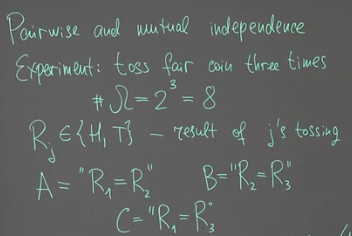 Pairwise and mutual independence
Experiment: toss fair coin three times
# Ω = 2³ = 8
R_j ∈ {H, T} – result of j's tossing
A = "R₁ = R₂" B = "R₂ = R₃"
C = "R₁ = R₃"